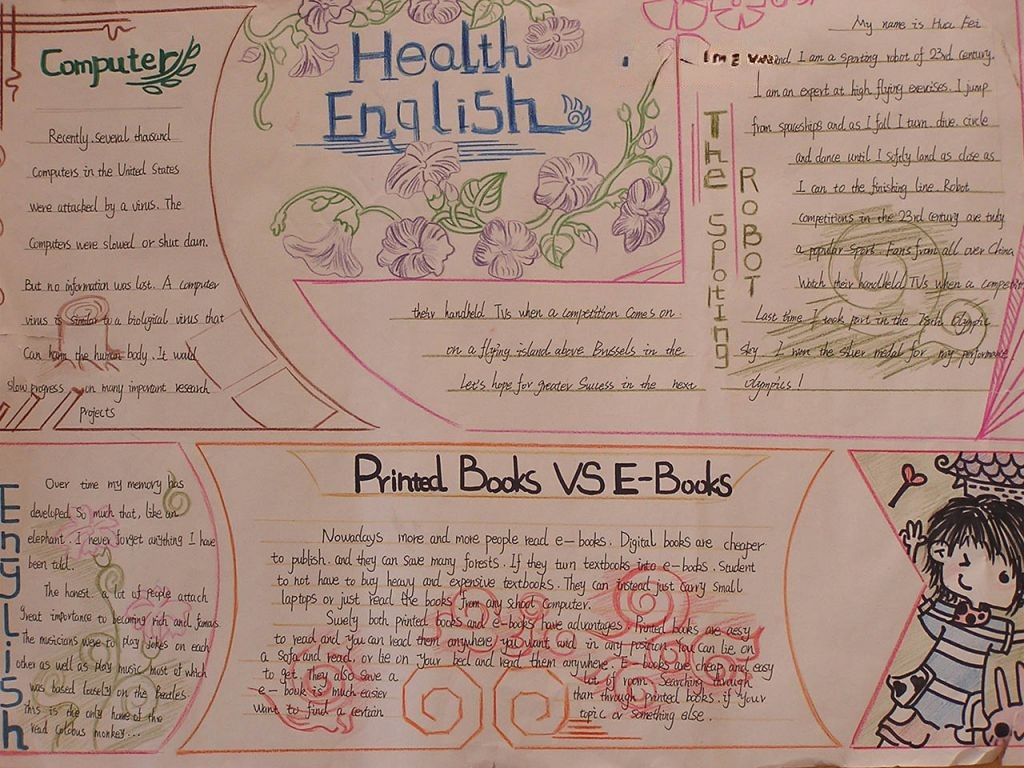 Computer
Recently, several thousand
Computers in the United States
were attacked by a virus. The
Computers were slowed or shut down.
But no information was lost. A computer
virus is similar to a biological virus that
Can harm the human body. It would
slow progress on many important research
Projects
Health
English
My name is Hua Fei
and I am a sporting robot of 23rd century.
I am an expert at high flying exercises. I jump
from spaceships and as I fall I turn. dive. circle
and dance until I softly land as close as
I can to the finishing line. Robot
competitions in the 23rd century are truly
a popular sport. Fans from all over China
Watch their handheld TVs when a
The Spotting
ROBOT
their handheld TVs when a competition comes on
Last time I took part in the Olympic
on a flying island above Brussels in the
sky I won the silver medal for my performance
Let's hope for greater Success in the next
Olympics!
English
Over time my memory has
developed So much that, like an
elephant. I never forget anything I have
been told.
The honest. a lot of People attach
Great importance to becoming rich and famous
The musicians were to Play jokes on each
other as well as Play music most of which
was based loosely on the Beatles.
this is the only home of the
read Colobus monkey...
Printed Books VS E-Books
Nowadays more and more people read e-books. Digital books are cheaper
to publish. and they can save many forests. If they turn textbooks into e-books. Student
to not have to buy heavy and expensive textbooks. They can instead just carry small
laptops or just read the books from any school computer.
Surely both printed books and e-books have advantages. Printed books are aesy
to read and you can read them anywhere you want and in any position. You can lie on
a sofa and read, or lie on your bed and read them anywhere. E-books are cheap and easy
to get. They also save a lot of room. Searching through
e-book is much easier than through printed books. if your
want to find a certain topic or something else.